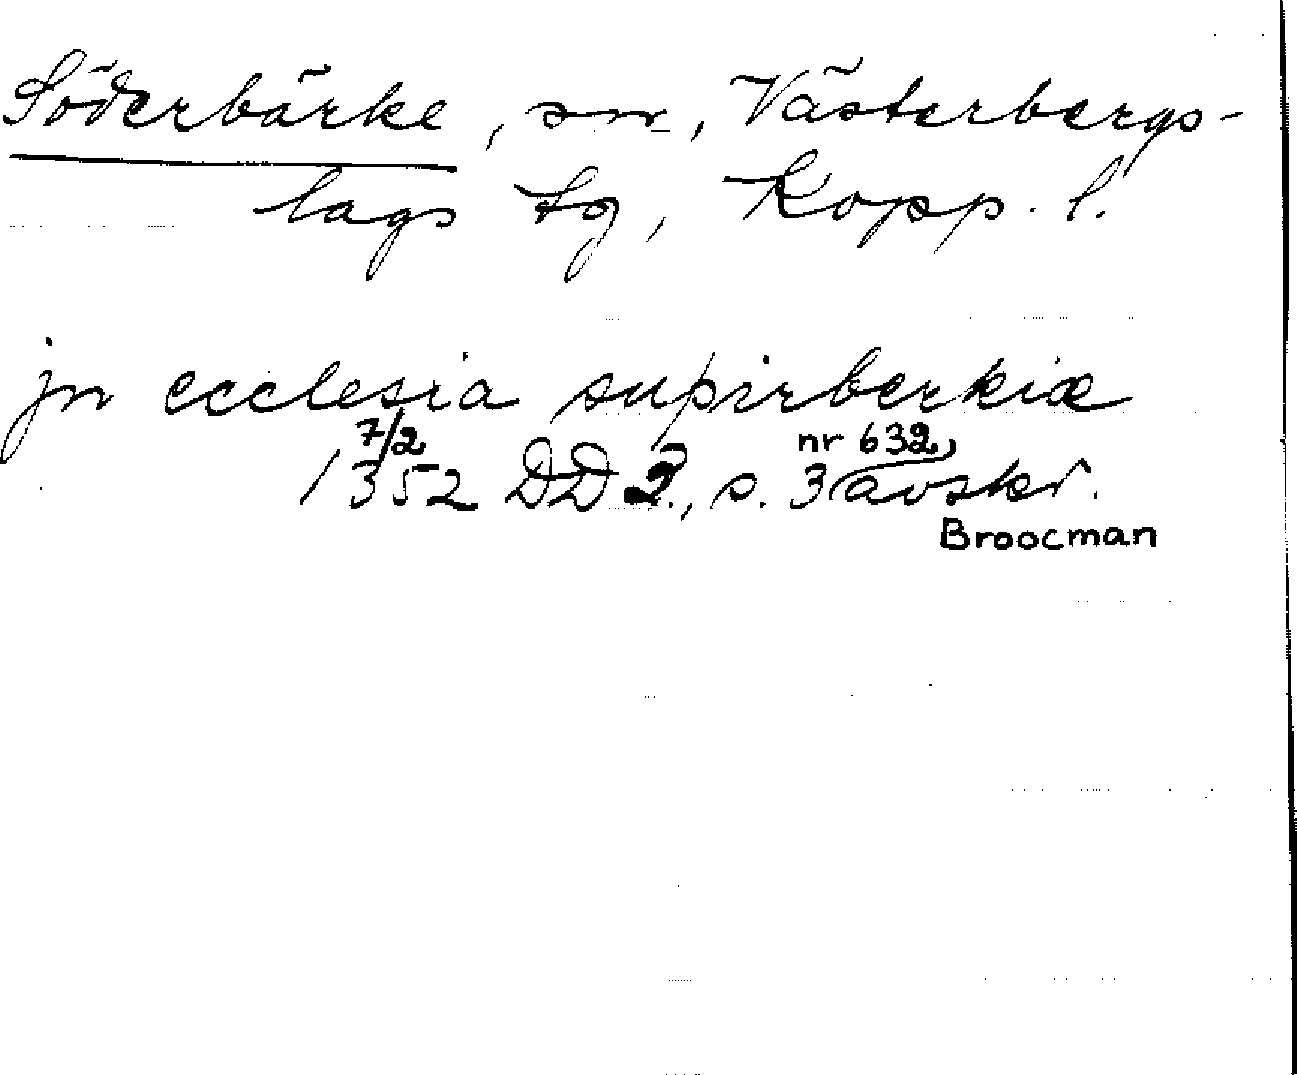 Söderbärke, sn, Västerbergs-
lags tg, Kopp. l.
jn ecclesia supirberkiæ
7/2 nr 632,
1352 DD 2., s. 3 avskr.
Broocman